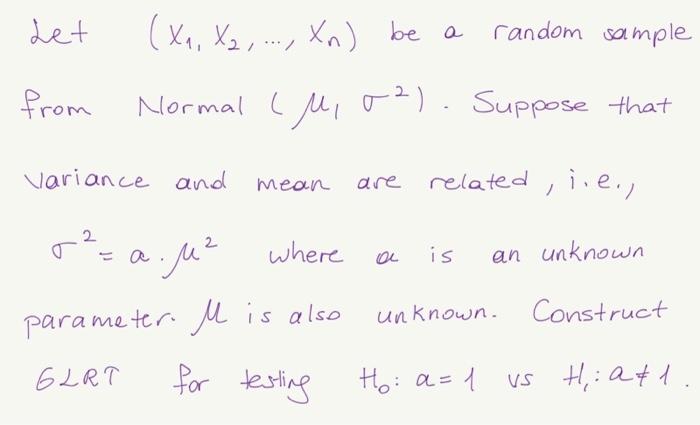 Let (X₁, X₂, ..., Xn) be a random sample
from Normal (μ, σ²). Suppose that
variance and mean are related, i.e.,
σ² = a·μ² where a is an unknown
parameter. μ is also unknown. Construct
GLRT for testing H₀: a=1 vs H₁: a≠1.